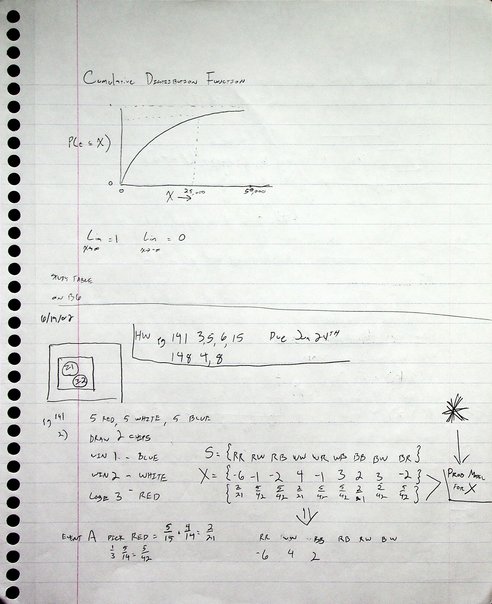 Cumulative Distribution Function
1
P(t ≤ X)
0
0 X → 25,000 50,000
Lim = 1 Lim = 0
x→∞ x→-∞
STUDY TABLE
ON B6
HW pg 141 3,5,6,15 Due Jun 24TH
148 4,8
pg 141
2)
5 RED, 5 WHITE, 5 BLUE
DRAW 2 CHIPS
WIN 1 - BLUE
WIN 2 - WHITE
LOSE 3 - RED
S = {RR RW RB WW WR WB BB BW BR}
X = {-6 -1 -2 4 -1 3 2 3 -2}
{2/21 5/42 5/42 2/21 5/42 5/42 2/21 5/42 5/42}
PROB MODEL
FOR X
EVENT A PICK RED = 5/15 · 4/14 = 2/21
1/3 5/14 = 5/42
RR WW BB RB RW BW
-6 4 2